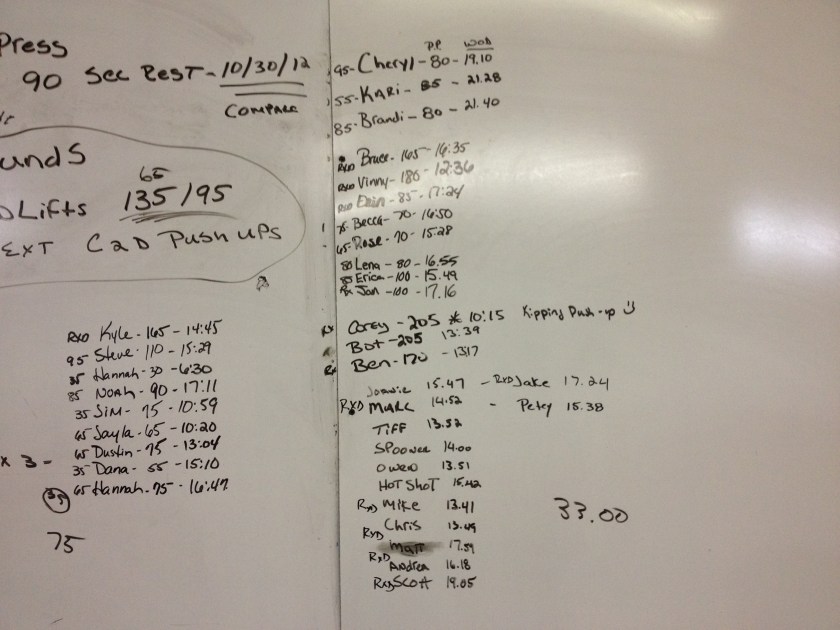 Press
90 Sec Rest - 10/30/12
Compare
unds
65
Lifts 135/95
Ext C2D Push ups
RXD Kyle - 165 - 14:45
95 Steve - 110 - 15:29
35 Hannah - 30 - 6:30
85 Noah - 90 - 17:11
35 Jim - 75 - 10:59
65 Jayla - 65 - 10:20
65 Dustin - 75 - 13:04
x 3 - 35 Dana - 55 - 15:10
35 65 Hannah - 75 - 16:47
75
P.P. WOD
95 - Cheryl - 80 - 19.10
55 - Kari - 85 - 21.28
85 - Brandi - 80 - 21.40
RXD Bruce - 165 - 16:35
RXD Vinny - 180 - 12:36
RXD Erin - 85 - 17:24
Becca - 70 - 16:50
65 - Rose - 70 - 15:28
80 Lena - 80 - 16.55
Erica - 100 - 15.49
Rx Jan - 100 - 17.16
Rx Corey - 205 * 10:15 Kipping Push-up
Bot - 205 13:39
Rx Ben - 170 - 13:17
Joanie 15.47 - RXD Jake 17.24
RXD Marc 14.52 - Petey 15.38
Tiff 13.52
Spooner 14.00
Owen 13.51
Hot Shot 15.42
RXD Mike 13.41
RXD Chris 13.49
Matt 17.59
RXD Andrea 16.18
RXD Scott 19.05
33.00